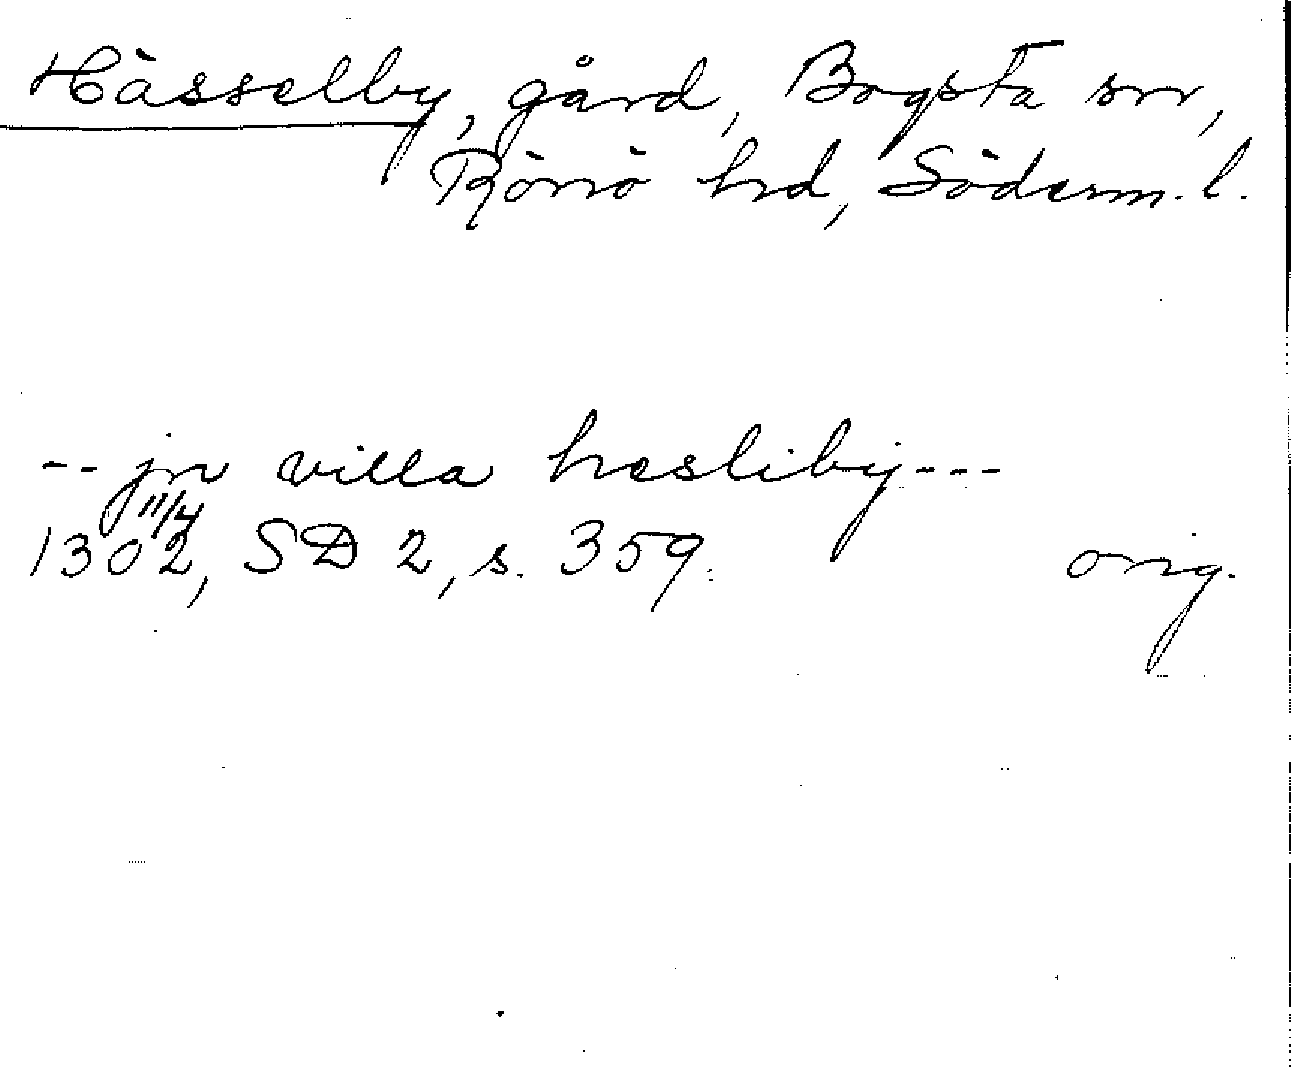 Hässelby, gård, Bogsta sn,
Rönö hd, Söderm. l.
-- jn villa hesliby ---
11/4
1302, SD 2, s. 359. orig.